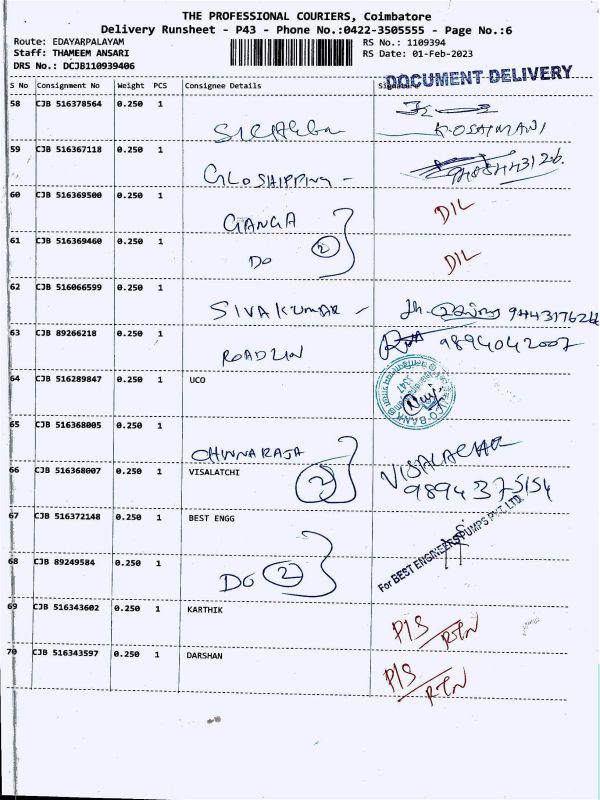 THE PROFESSIONAL COURIERS, Coimbatore
Delivery Runsheet - P43 - Phone No.:0422-3505555 - Page No.:6
Route: EDAYARPALAYAM RS No.: 1109394
Staff: THAMEEM ANSARI RS Date: 01-Feb-2023
DRS No.: DCJB110939406
DOCUMENT DELIVERY
S No Consignment No Weight PCS Consignee Details
58 CJB 516378564 0.250 1
59 CJB 516367118 0.250 1
GLOSHIPPING -
60 CJB 516369500 0.250 1
GANGA D/L
61 CJB 516369460 0.250 1
DO 2 D/L
62 CJB 516066599 0.250 1
SIVAKUMAR -
63 CJB 89266218 0.250 1
ROADLIN 9894042007
64 CJB 516289847 0.250 1 UCO
UCO BANK
65 CJB 516368005 0.250 1
66 CJB 516368007 0.250 1 VISALATCHI
2 9894375154
67 CJB 516372148 0.250 1 BEST ENGG
For BEST ENGINEERS PUMPS PVT. LTD.
68 CJB 89249584 0.250 1
DO 2
69 CJB 516343602 0.250 1 KARTHIK
P/S RTN
70 CJB 516343597 0.250 1 DARSHAN
P/S RTN